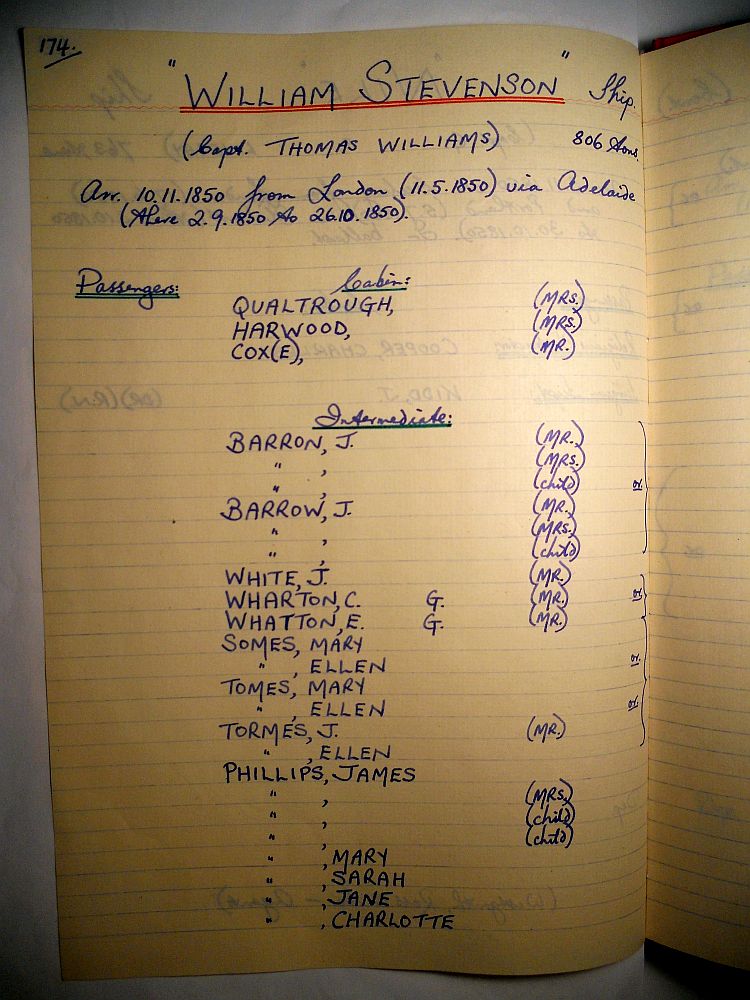 174.
"WILLIAM STEVENSON" Ship.
(Capt. THOMAS WILLIAMS) 806 tons.
Arr. 10.11.1850 from London (11.5.1850) via Adelaide
(there 2.9.1850 to 26.10.1850).
Passengers: Cabin:
QUALTROUGH, (MRS.)
HARWOOD, (MRS.)
COX(E), (MR.)
Intermediate:
BARRON, J. (MR.)
" , (MRS.)
" , (child) or
BARROW, J. (MR.)
" , (MRS.)
" , (child)
WHITE, J. (MR.)
WHARTON, C. G. (MR.) or
WHATTON, E. G. (MR.)
SOMES, MARY
" , ELLEN or
TOMES, MARY
" , ELLEN or
TORMES, J. (MR.)
" , ELLEN
PHILLIPS, JAMES
" , (MRS.)
" , (child)
" , (child)
" , MARY
" , SARAH
" , JANE
" , CHARLOTTE